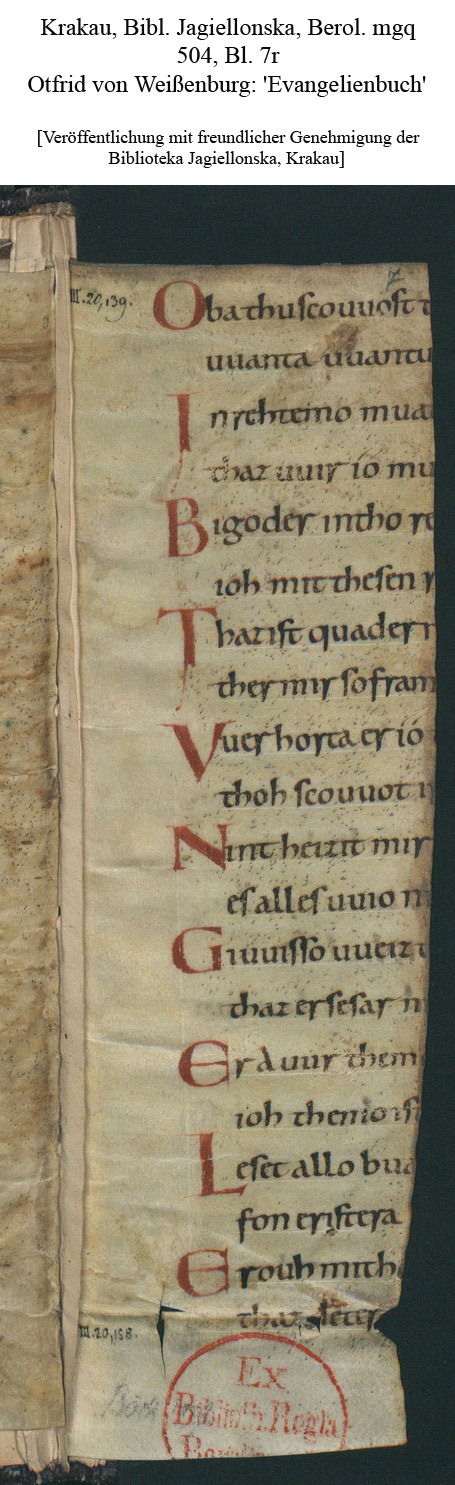 Krakau, Bibl. Jagiellonska, Berol. mgq
504, Bl. 7r
Otfrid von Weißenburg: 'Evangelienbuch'
[Veröffentlichung mit freundlicher Genehmigung der
Biblioteka Jagiellonska, Krakau]
7
III.20,139.
Oba thu scouuost t
uuanta uuantu
In rehtemo mua
thaz uuir io mu
Bigoder intho re
ioh mit thesen
Thaz ist quader
ther mir so fram
Vuer horta er io
thoh scouuot
Nint heizit mir
es alles uuio
Giuuisso uueiz
thaz er se sar n
Erduur them
ioh themo ist
Leset allo bua
fon eristera
Er ouh mith
thaz
III.20,158.
Ex
Biblioth. Regia